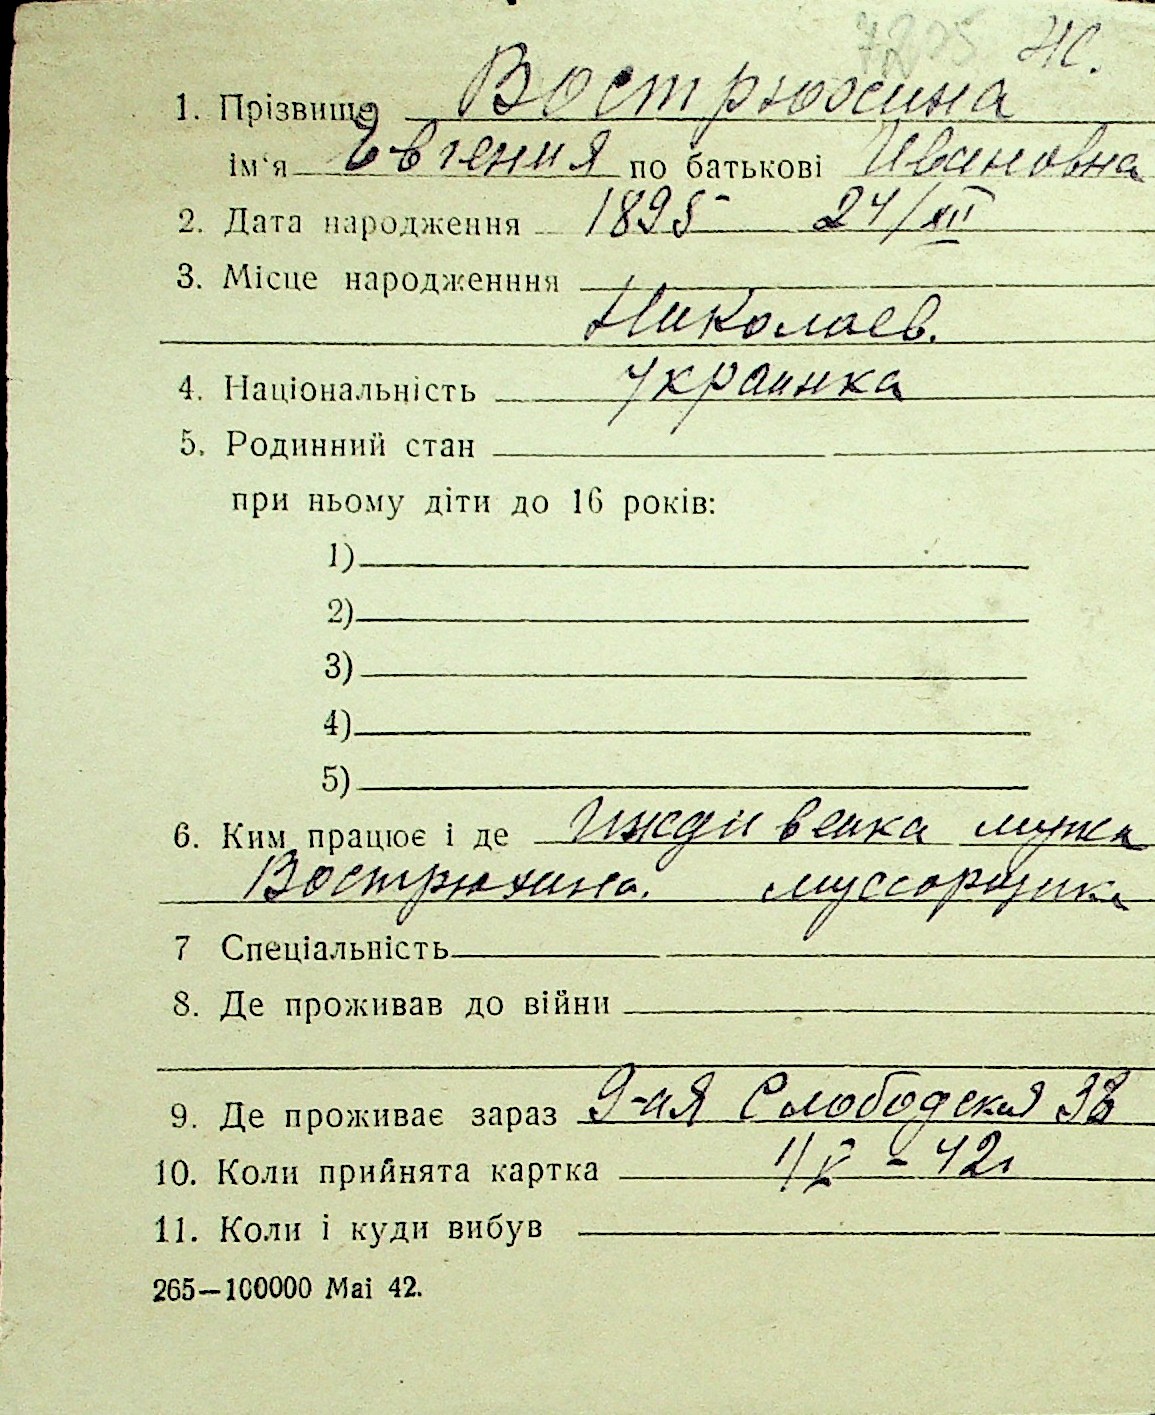 Ж.
1. Прізвище Вострюхина
ім'я Евгения по батькові Ивановна
2. Дата народження 1895 24/XII
3. Місце народженння
Николаев.
4. Національність Украинка
5. Родинний стан
при ньому діти до 16 років:
1)
2)
3)
4)
5)
6. Ким працює і де Иждивенка мужа
Вострюхина. муссорщика
7 Спеціальність
8. Де проживав до війни
9. Де проживає зараз 9-ая Слободская 38
10. Коли прийнята картка - 42г
11. Коли і куди вибув
265—100000 Mai 42.